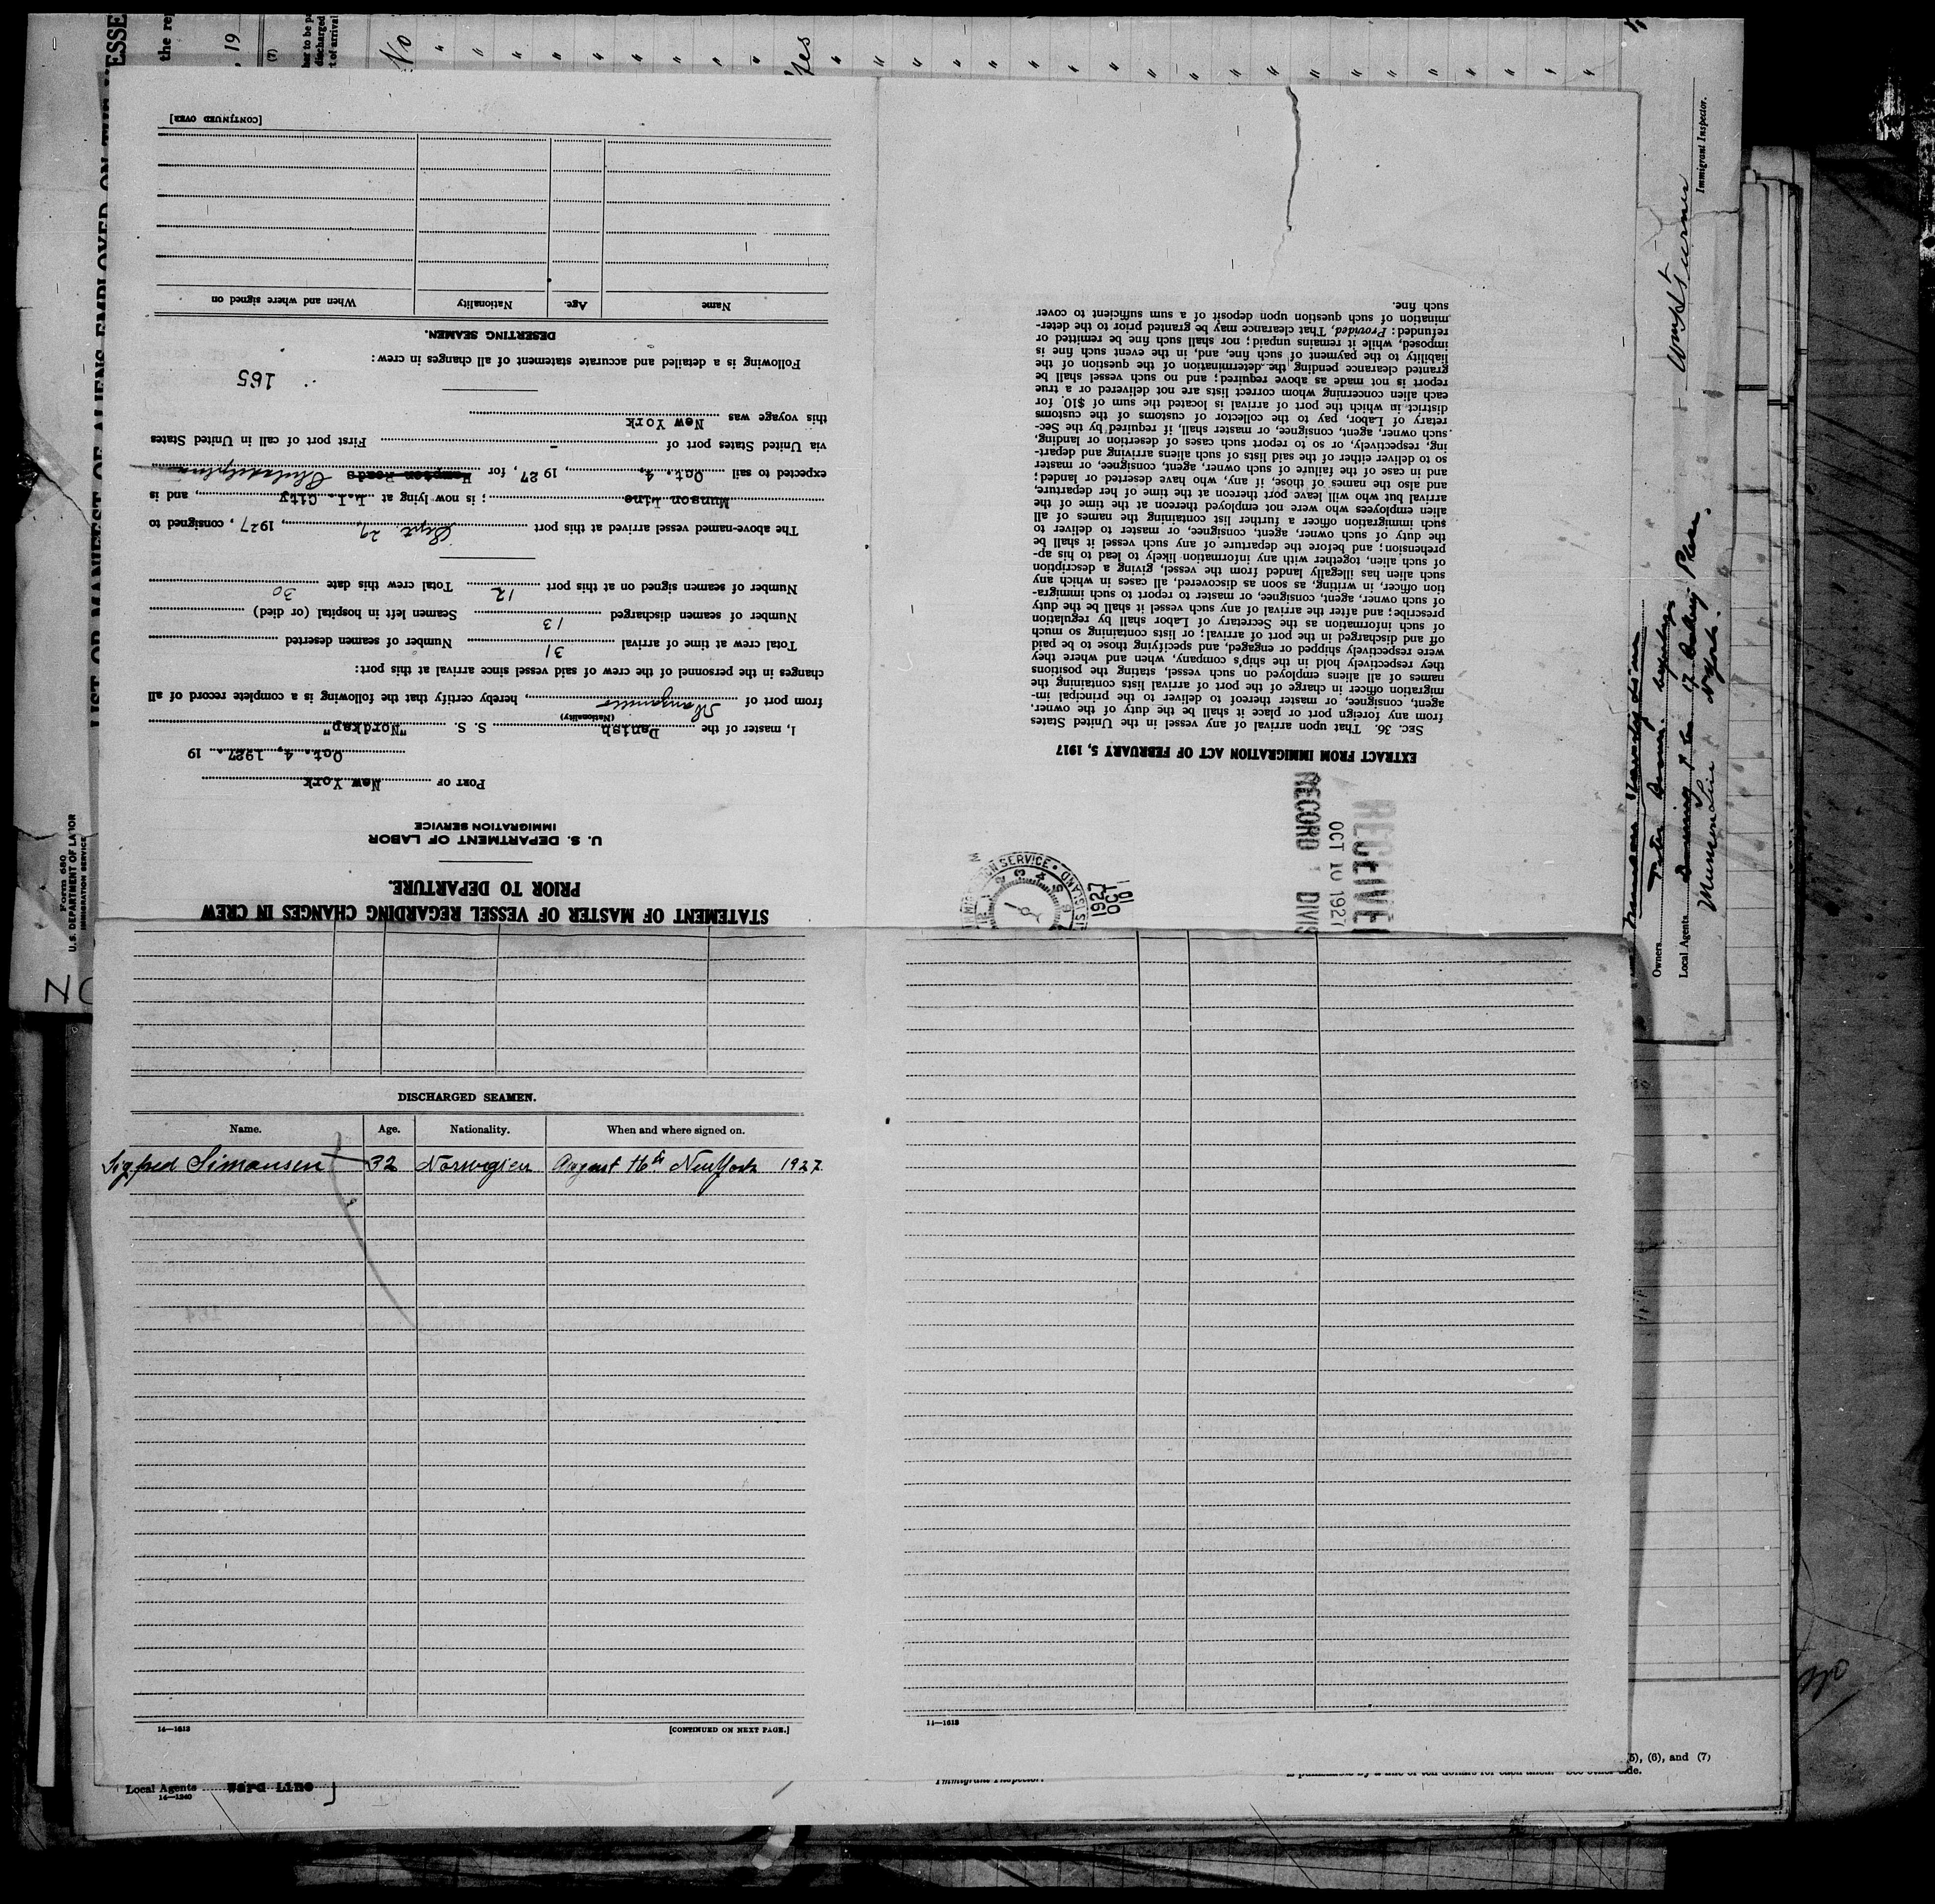 STATEMENT OF MASTER OF VESSEL REGARDING CHANGES IN CREW
PRIOR TO DEPARTURE.
U. S. DEPARTMENT OF LABOR
IMMIGRATION SERVICE
PORT OF New York
Oct. 4, 1927. 19
I, master of the Danish S. S. "Nordkap"
(Nationality)
from port of Manzanillo, hereby certify that the following is a complete record of all
changes in the personnel of the crew of said vessel since arrival at this port:
Total crew at time of arrival 31 Number of seamen deserted
Number of seamen discharged 13 Seamen left in hospital (or died)
Number of seamen signed on at this port 12 Total crew this date 30
The above-named vessel arrived at this port Sept 29, 1927, consigned to
Munson Line; is now lying at L.I. City, and is
expected to sail Oct. 4, 19 27, for Hampton Roads Philadelphia
via United States port of - First port of call in United States
this voyage was New York
165
Following is a detailed and accurate statement of all changes in crew:
DESERTING SEAMEN.
Name Age. Nationality When and where signed on
[CONTINUED OVER]
RECEIVED
OCT 10 1927
RECORD DIVIS
OCT 10 1927
EXTRACT FROM IMMIGRATION ACT OF FEBRUARY 5, 1917
SEC. 36. That upon arrival of any vessel in the United States
from any foreign port or place it shall be the duty of the owner,
agent, consignee, or master thereof to deliver to the principal im-
migration officer in charge of the port of arrival lists containing the
names of all aliens employed on such vessel, stating the positions
they respectively hold in the ship's company, when and where they
were respectively shipped or engaged, and specifying those to be paid
off and discharged in the port of arrival; or lists containing so much
of such information as the Secretary of Labor shall by regulation
prescribe; and after the arrival of any such vessel it shall be the duty
of such owner, agent, consignee, or master to report to such immigra-
tion officer, in writing, as soon as discovered, all cases in which any
such alien has illegally landed from the vessel, giving a description
of such alien, together with any information likely to lead to his ap-
prehension; and before the departure of any such vessel it shall be
the duty of such owner, agent, consignee, or master to deliver to
such immigration officer a further list containing the names of all
alien employees who were not employed thereon at the time of the
arrival but who will leave port thereon at the time of her departure,
and also the names of those, if any, who have deserted or landed;
and in case of the failure of such owner, agent, consignee, or master
so to deliver either of the said lists of such aliens arriving and depart-
ing, respectively, or so to report such cases of desertion or landing,
such owner, agent, consignee, or master shall, if required by the Sec-
retary of Labor, pay to the collector of customs of the customs
district in which the port of arrival is located the sum of $10 for
each alien concerning whom correct lists are not delivered or a true
report is not made as above required; and no such vessel shall be
granted clearance pending the determination of the question of the
liability to the payment of such fine, and, in the event such fine is
imposed, while it remains unpaid; nor shall such fine be remitted or
refunded: Provided, That clearance may be granted prior to the deter-
mination of such question upon deposit of a sum sufficient to cover
such fine.
DISCHARGED SEAMEN.
Name. Age. Nationality. When and where signed on.
Sigfred Simonsen 32 Norwegien August 16th New York 1927
14—1613 [CONTINUED ON NEXT PAGE.]
14—1613
Local Agents Ward Line
14—1240
Immigrant Inspector.
(5), (6), and (7)
Form 680
U. S. DEPARTMENT OF LABOR
IMMIGRATION SERVICE
LIST OR MANIFEST OF ALIENS EMPLOYED ON THE VESSE
the rep
, 19
(7)
her to be pa
discharged
t of arrival
No
Yes
Immigrant Inspector.
Owners
Local Agents
Munson Line